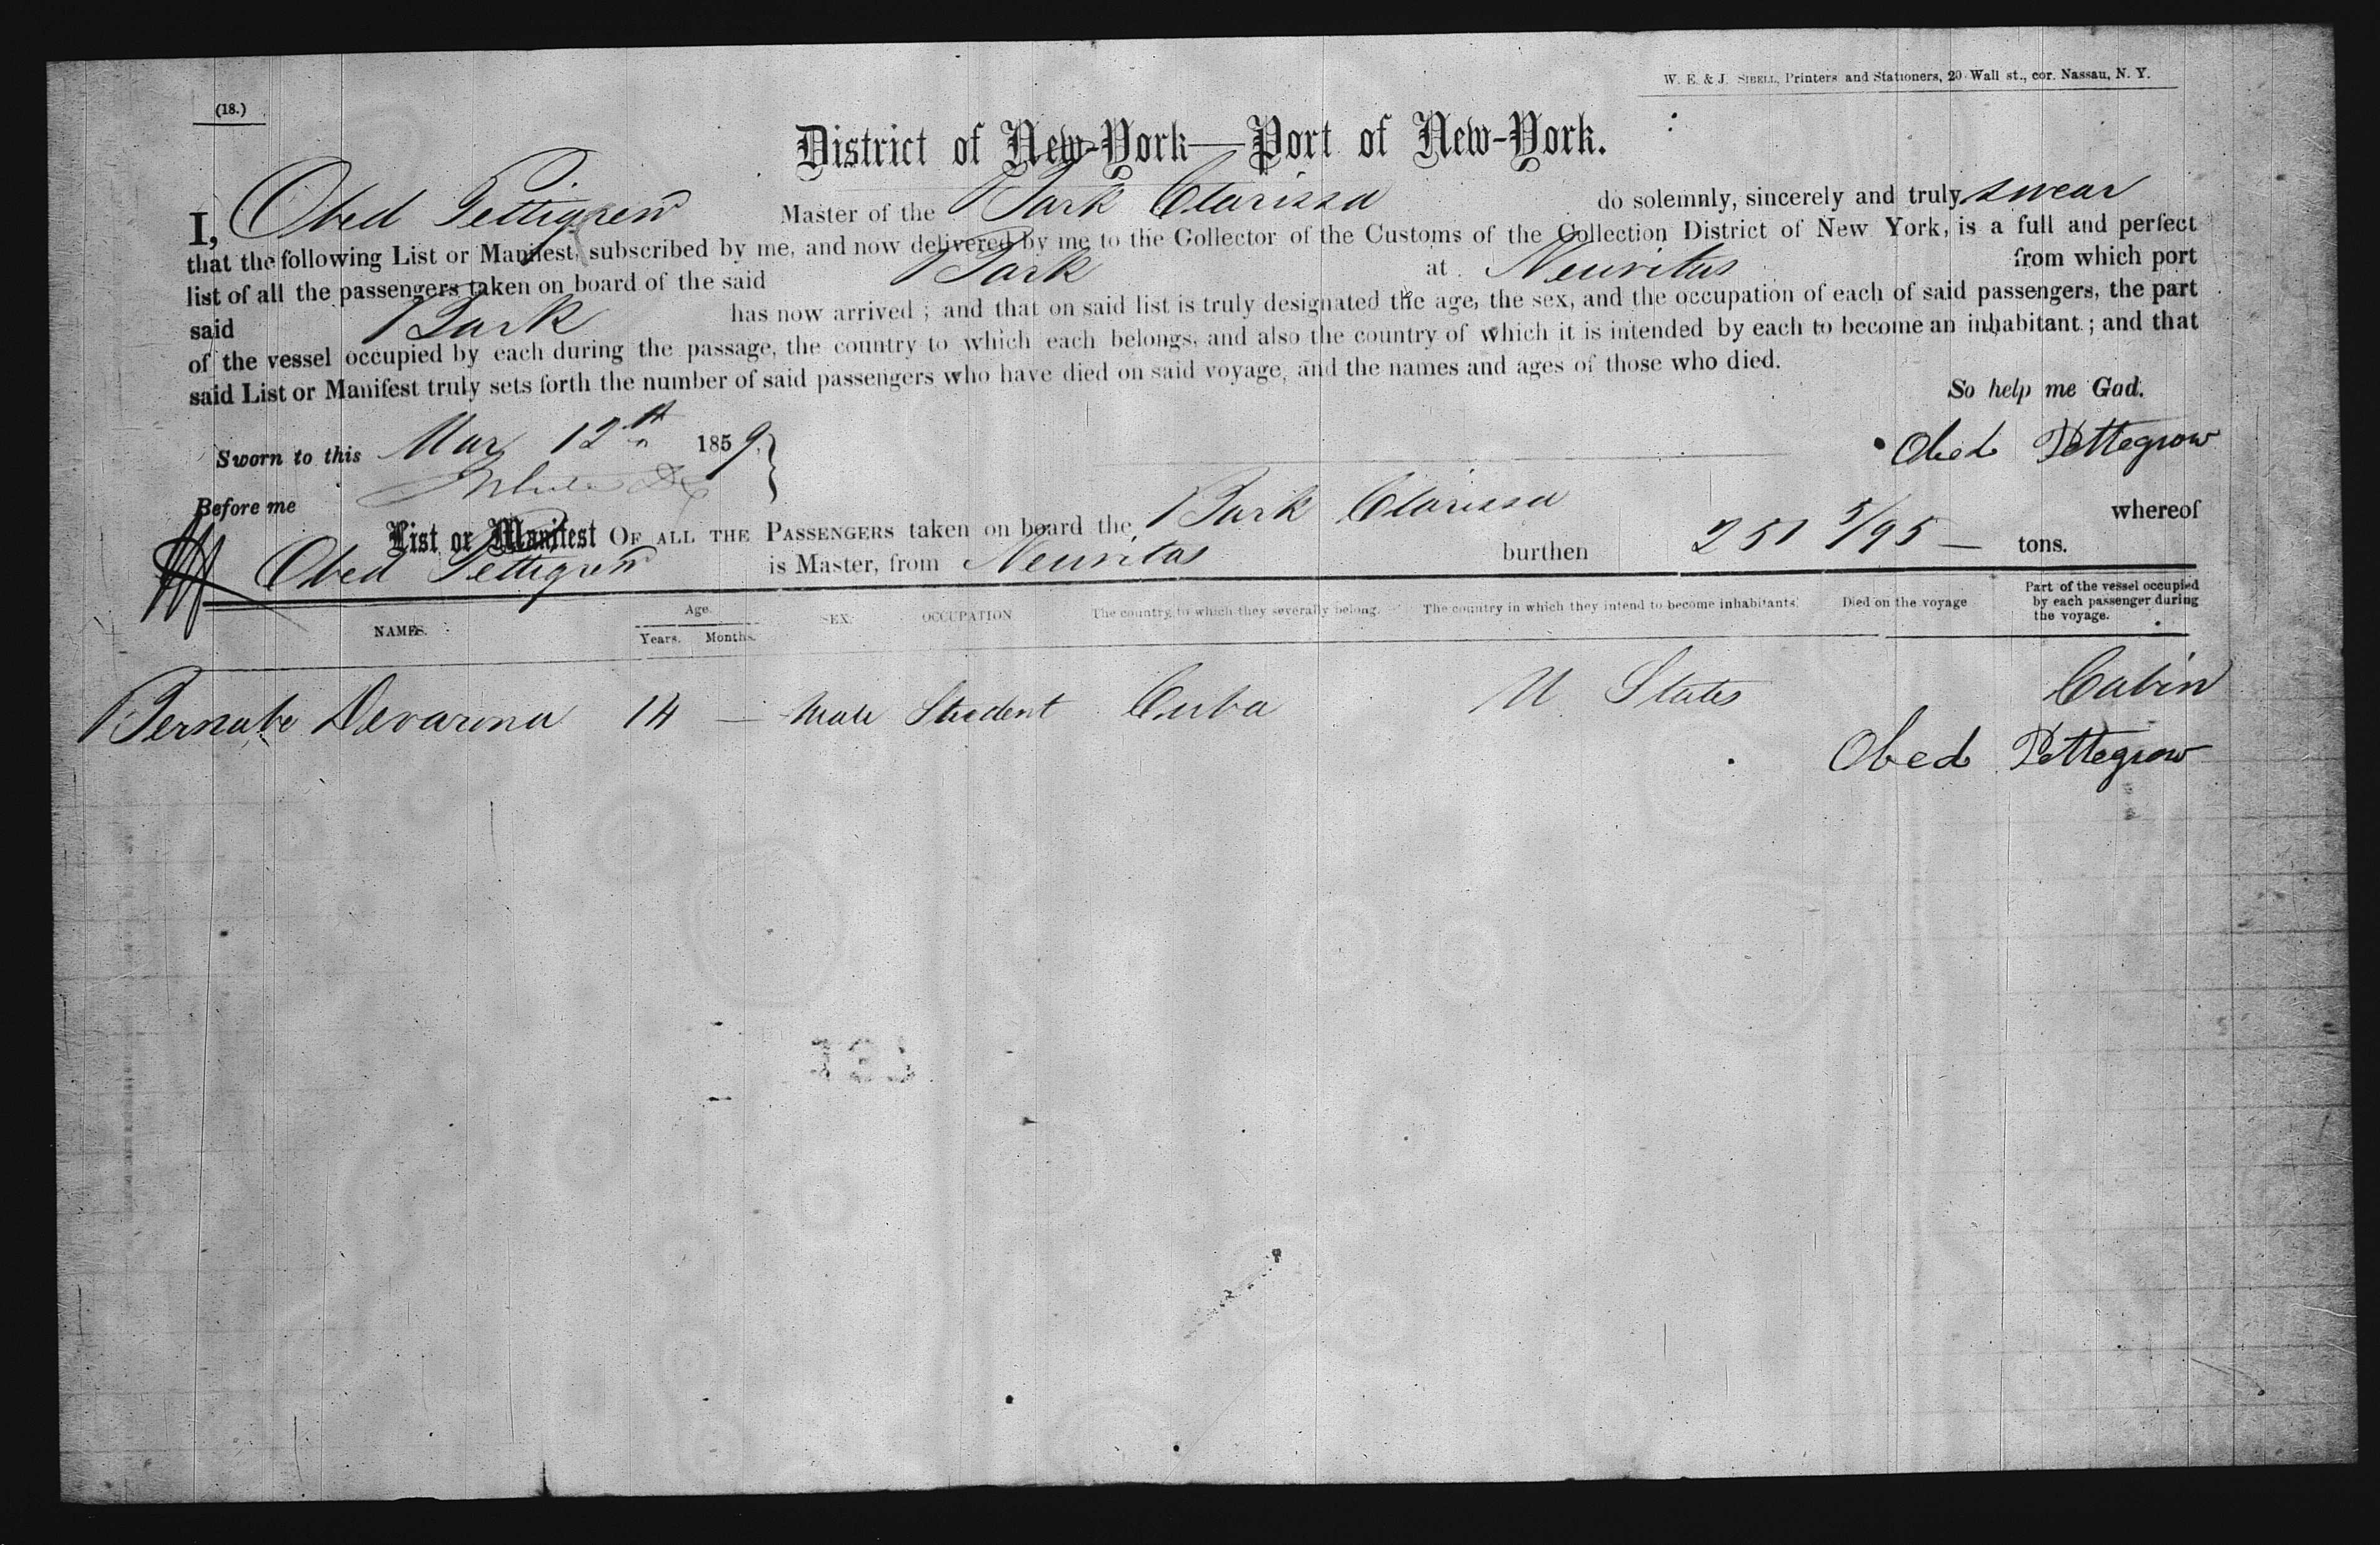 W. E. & J. SIBELL, Printers and Stationers, 20 Wall st., cor. Nassau, N. Y.
(18.)
District of New-York—Port of New-York.
I, Obed Pettigrew Master of the Bark Clarissa do solemnly, sincerely and truly swear
that the following List or Manifest, subscribed by me, and now delivered by me to the Collector of the Customs of the Collection District of New York, is a full and perfect
list of all the passengers taken on board of the said Bark at Neuvitas from which port
said Bark has now arrived ; and that on said list is truly designated the age, the sex, and the occupation of each of said passengers, the part
of the vessel occupied by each during the passage, the country to which each belongs, and also the country of which it is intended by each to become an inhabitant ; and that
said List or Manifest truly sets forth the number of said passengers who have died on said voyage, and the names and ages of those who died.
So help me God.
Sworn to this Mar 12th 1859.
Obed Pettegrow
Before me
List or Manifest OF ALL THE PASSENGERS taken on board the Bark Clarissa whereof
Obed Pettigrew is Master, from Neuvitas burthen 251 5/95 — tons.
NAMES. Age. Years. Months. SEX. OCCUPATION The country to which they severally belong. The country in which they intend to become inhabitants. Died on the voyage Part of the vessel occupied by each passenger during the voyage.
Bernabe Devarona 14 — Male Student Cuba U States Cabin
Obed Pettegrow